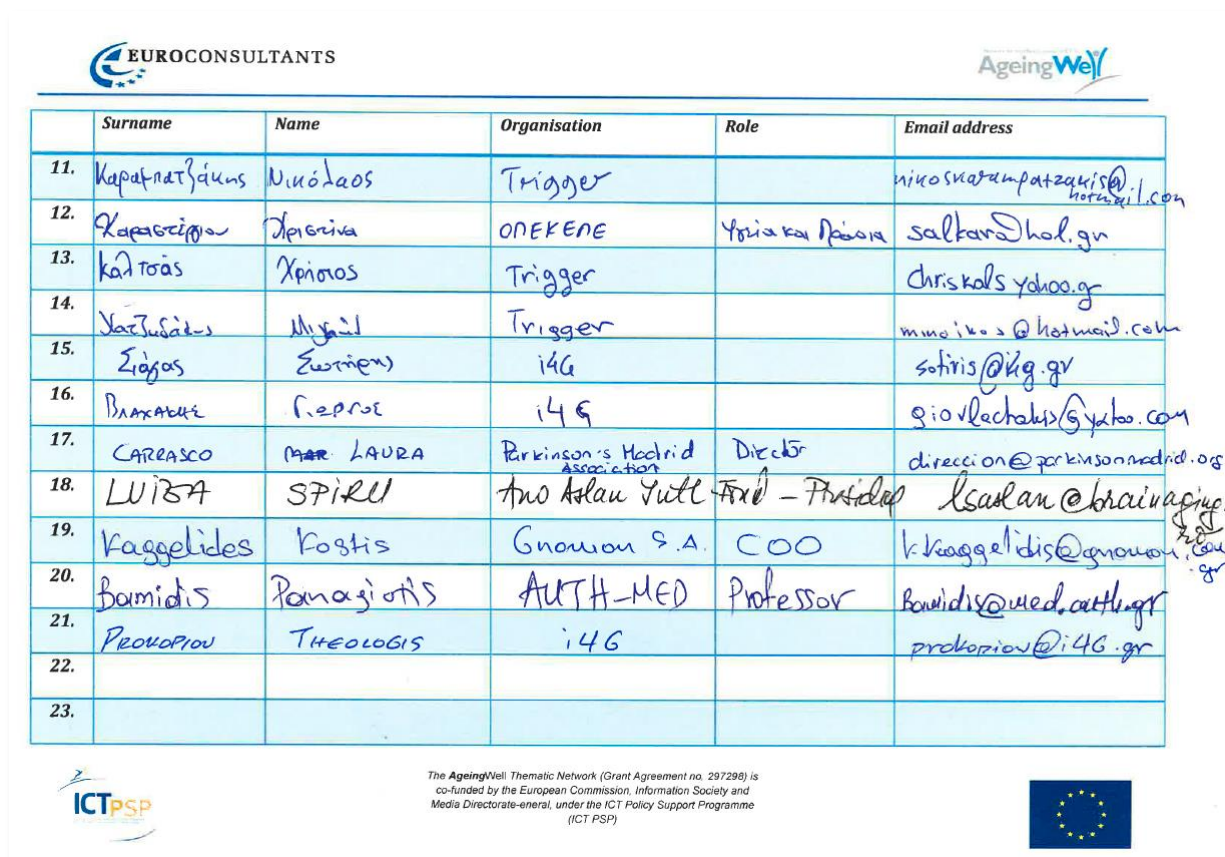 EUROCONSULTANTS
AgeingWell
Surname Name Organisation Role Email address
11. Καραμπατζάκης Νικόλαος Trigger nikoskarampatzakis@hotmail.com
12. Καραστέργιου Χριστίνα ΟΠΕΚΕΠΕ Υγεία και Πρόνοια salkara@hol.gr
13. Καλτσάς Χρήστος Trigger chriskals yahoo.gr
14. Χατζηδάκης Μιχαήλ Trigger @hotmail.com
15. Σιάγας Σωτήρης i4G sotiris@i4g.gr
16. ΒΛΑΧΑΚΗΣ Γιώργος i4G giovlachakis@yahoo.com
17. CARRASCO LAURA Parkinson's Madrid Association Director direccion@parkinsonmadrid.org
18. LUIZA SPIRU Ana Aslan lsaslan@brainaging.ro
19. Kaggelides Kostis Gnomon S.A. COO k.kaggelidis@gnomon.com.gr
20. Bamidis Panagiotis AUTH-MED Professor Bamidis@med.auth.gr
21. PROKOPIOU THEOLOGIS i4G prokopiou@i4G.gr
22.
23.
ICTPSP
The AgeingWell Thematic Network (Grant Agreement no. 297298) is
co-funded by the European Commission, Information Society and
Media Directorate-eneral, under the ICT Policy Support Programme
(ICT PSP)